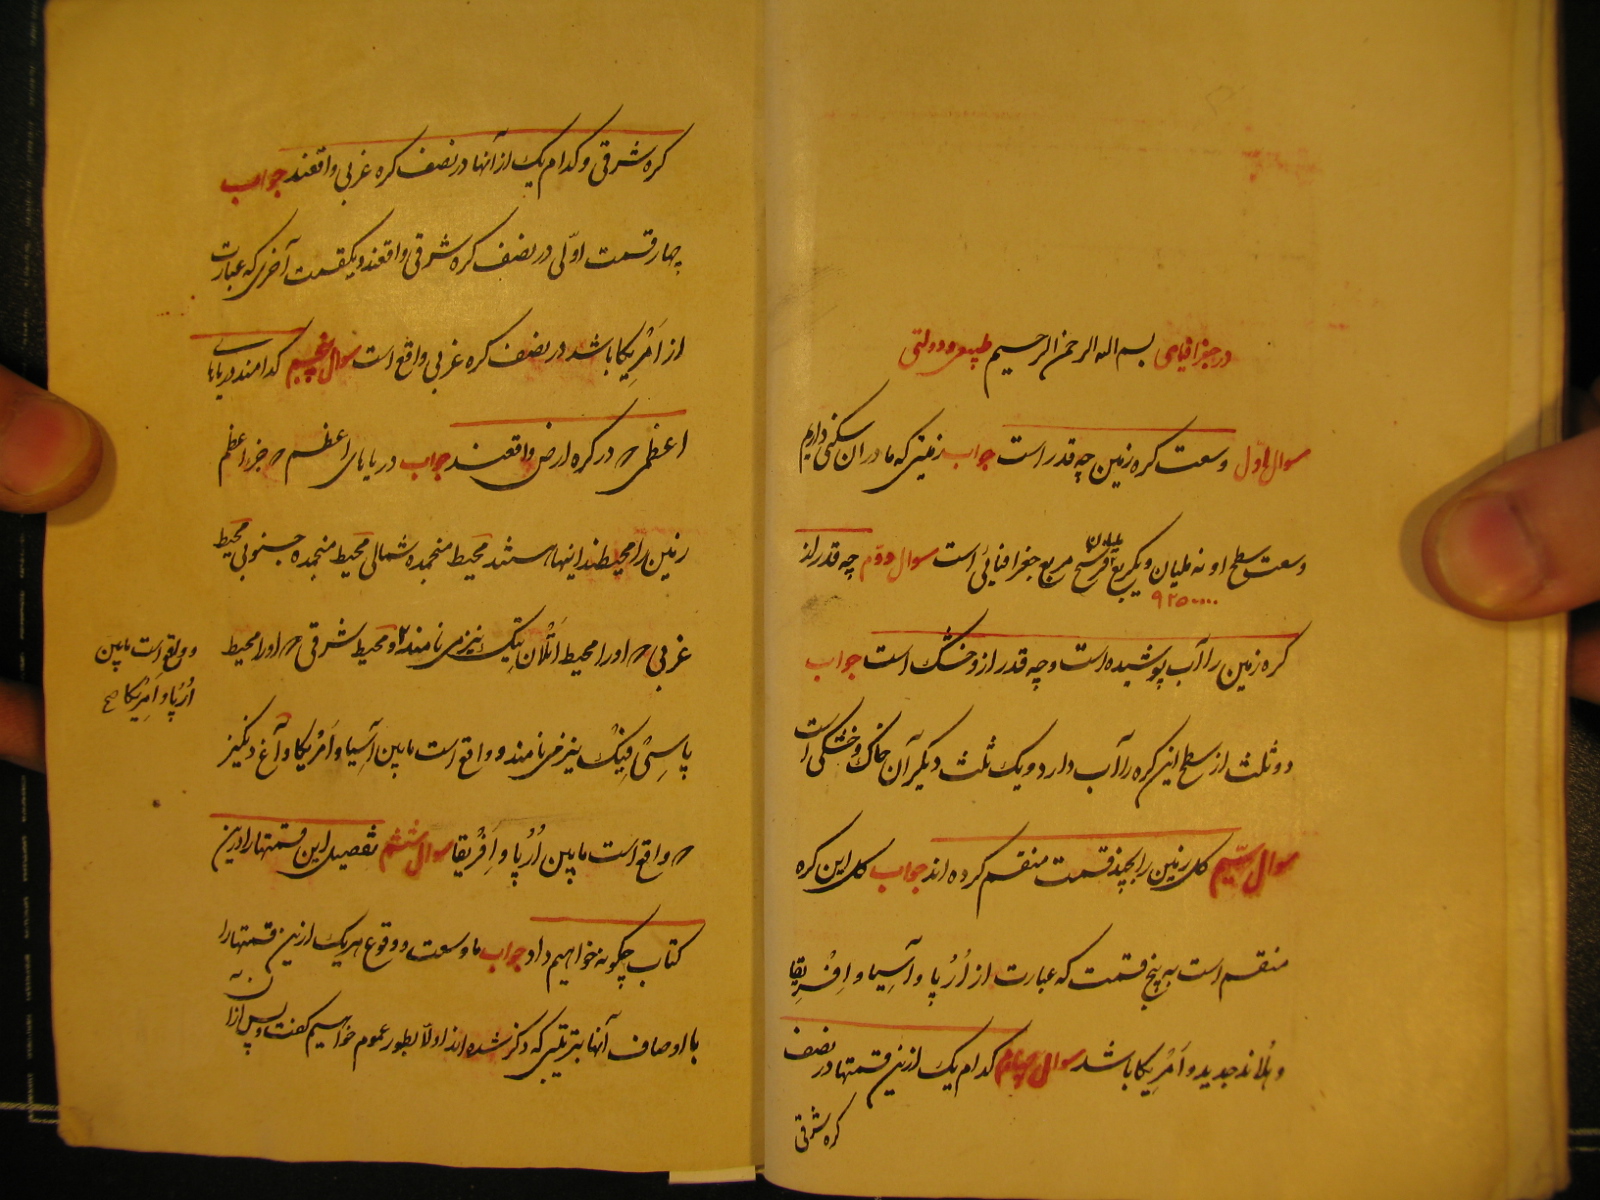 در جغرافیای بسم الله الرحمن الرحیم طبیعی و دولتی
سوال اوّل وسعت کره زمین چه قدر است جواب زمینی که ما در ان سکنی داریم
وسعت سطح او نه ملیان و یکربع ملیان فرسخ مربع جغرافیائی است سوال دوّم چه قدر از
۹۲۵۰۰۰۰
کره زمین را آب پوشیده است و چه قدر از و خشک است جواب
دو ثلث از سطح این کره را آب دارد و یک ثلث دیگر آن خاک و خشکی است
سوال سیّم کل زمین را بچند قسمت منقسم کرده اند جواب کل این کره
منقسم است به پنج قسمت که عبارت از اُرُپا و آسیا و اِفْرِیقا
و هُلاند جدید و اَمْرِیکا باشد سوال چهارم کدام یک ازین قسمتها در نصف
کره شرقی
کره شرقی و کدام یک از آنها در نصف کره غربی واقعند جواب
چهار قسمت اوّلی در نصف کره شرقی واقعند و یکقسمت آخری که عبارت
از اَمْرِیکا باشد در نصف کره غربی واقع است سوال پنجم کدامند دریاهای
اعظمی که در کره ارض واقعند جواب دریاهای اعظم که جزو اعظم
زمین را محیطند اینها هستند محیط منجمده شمالی محیط منجمده جنوبی محیط
غربی که اورا محیط اَتْلانِتِیک نیز می نامند و محیط شرقی که اورا محیط
و واقع است مابین
اُرُپا و اَمْرِیکا صح
پاسِیْفِیْک نیز می نامند و واقع است مابین آسیا و اَمْرِیکا و آغ دنگیز
که واقع است مابین اُرُپا و اَفْرِیقا سوال ششم تفصیل این قسمتها را درین
کتاب چگونه خواهیم داد جواب ما وسعت و وقوع هریک ازین قسمتها را
با اوصاف آنها بترتیبی که ذکر شده اند اولاً بطور عموم خواهیم گفت و پس از ان